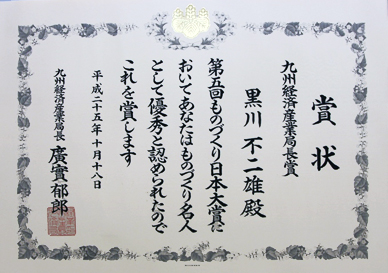 賞状
九州経済産業局長賞
黒川 不二雄 殿
第五回ものづくり日本大賞に
おいてあなたはものづくり名人
として優秀と認められたので
これを賞します
平成二十五年十月十八日
九州経済産業局長 廣實郁郎